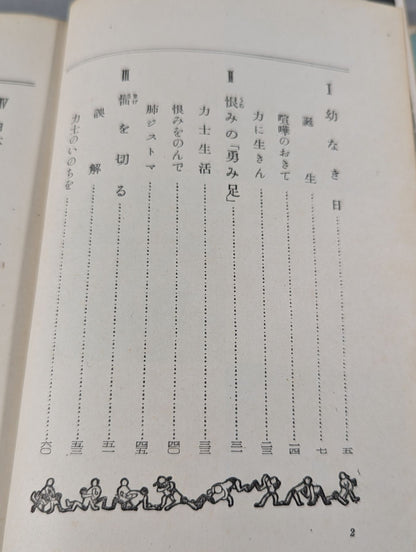 Ⅰ 幼なき日……五
誕生……七
喧嘩のおきて……一四
力に生きん……二三
Ⅱ 恨みの「勇み足」……三一
力士生活……三三
恨みをのんで……四〇
肺ジストマ……四五
Ⅲ 髷を切る……五一
誤解……五三
力士のいのちを……六〇
2
Ⅳ